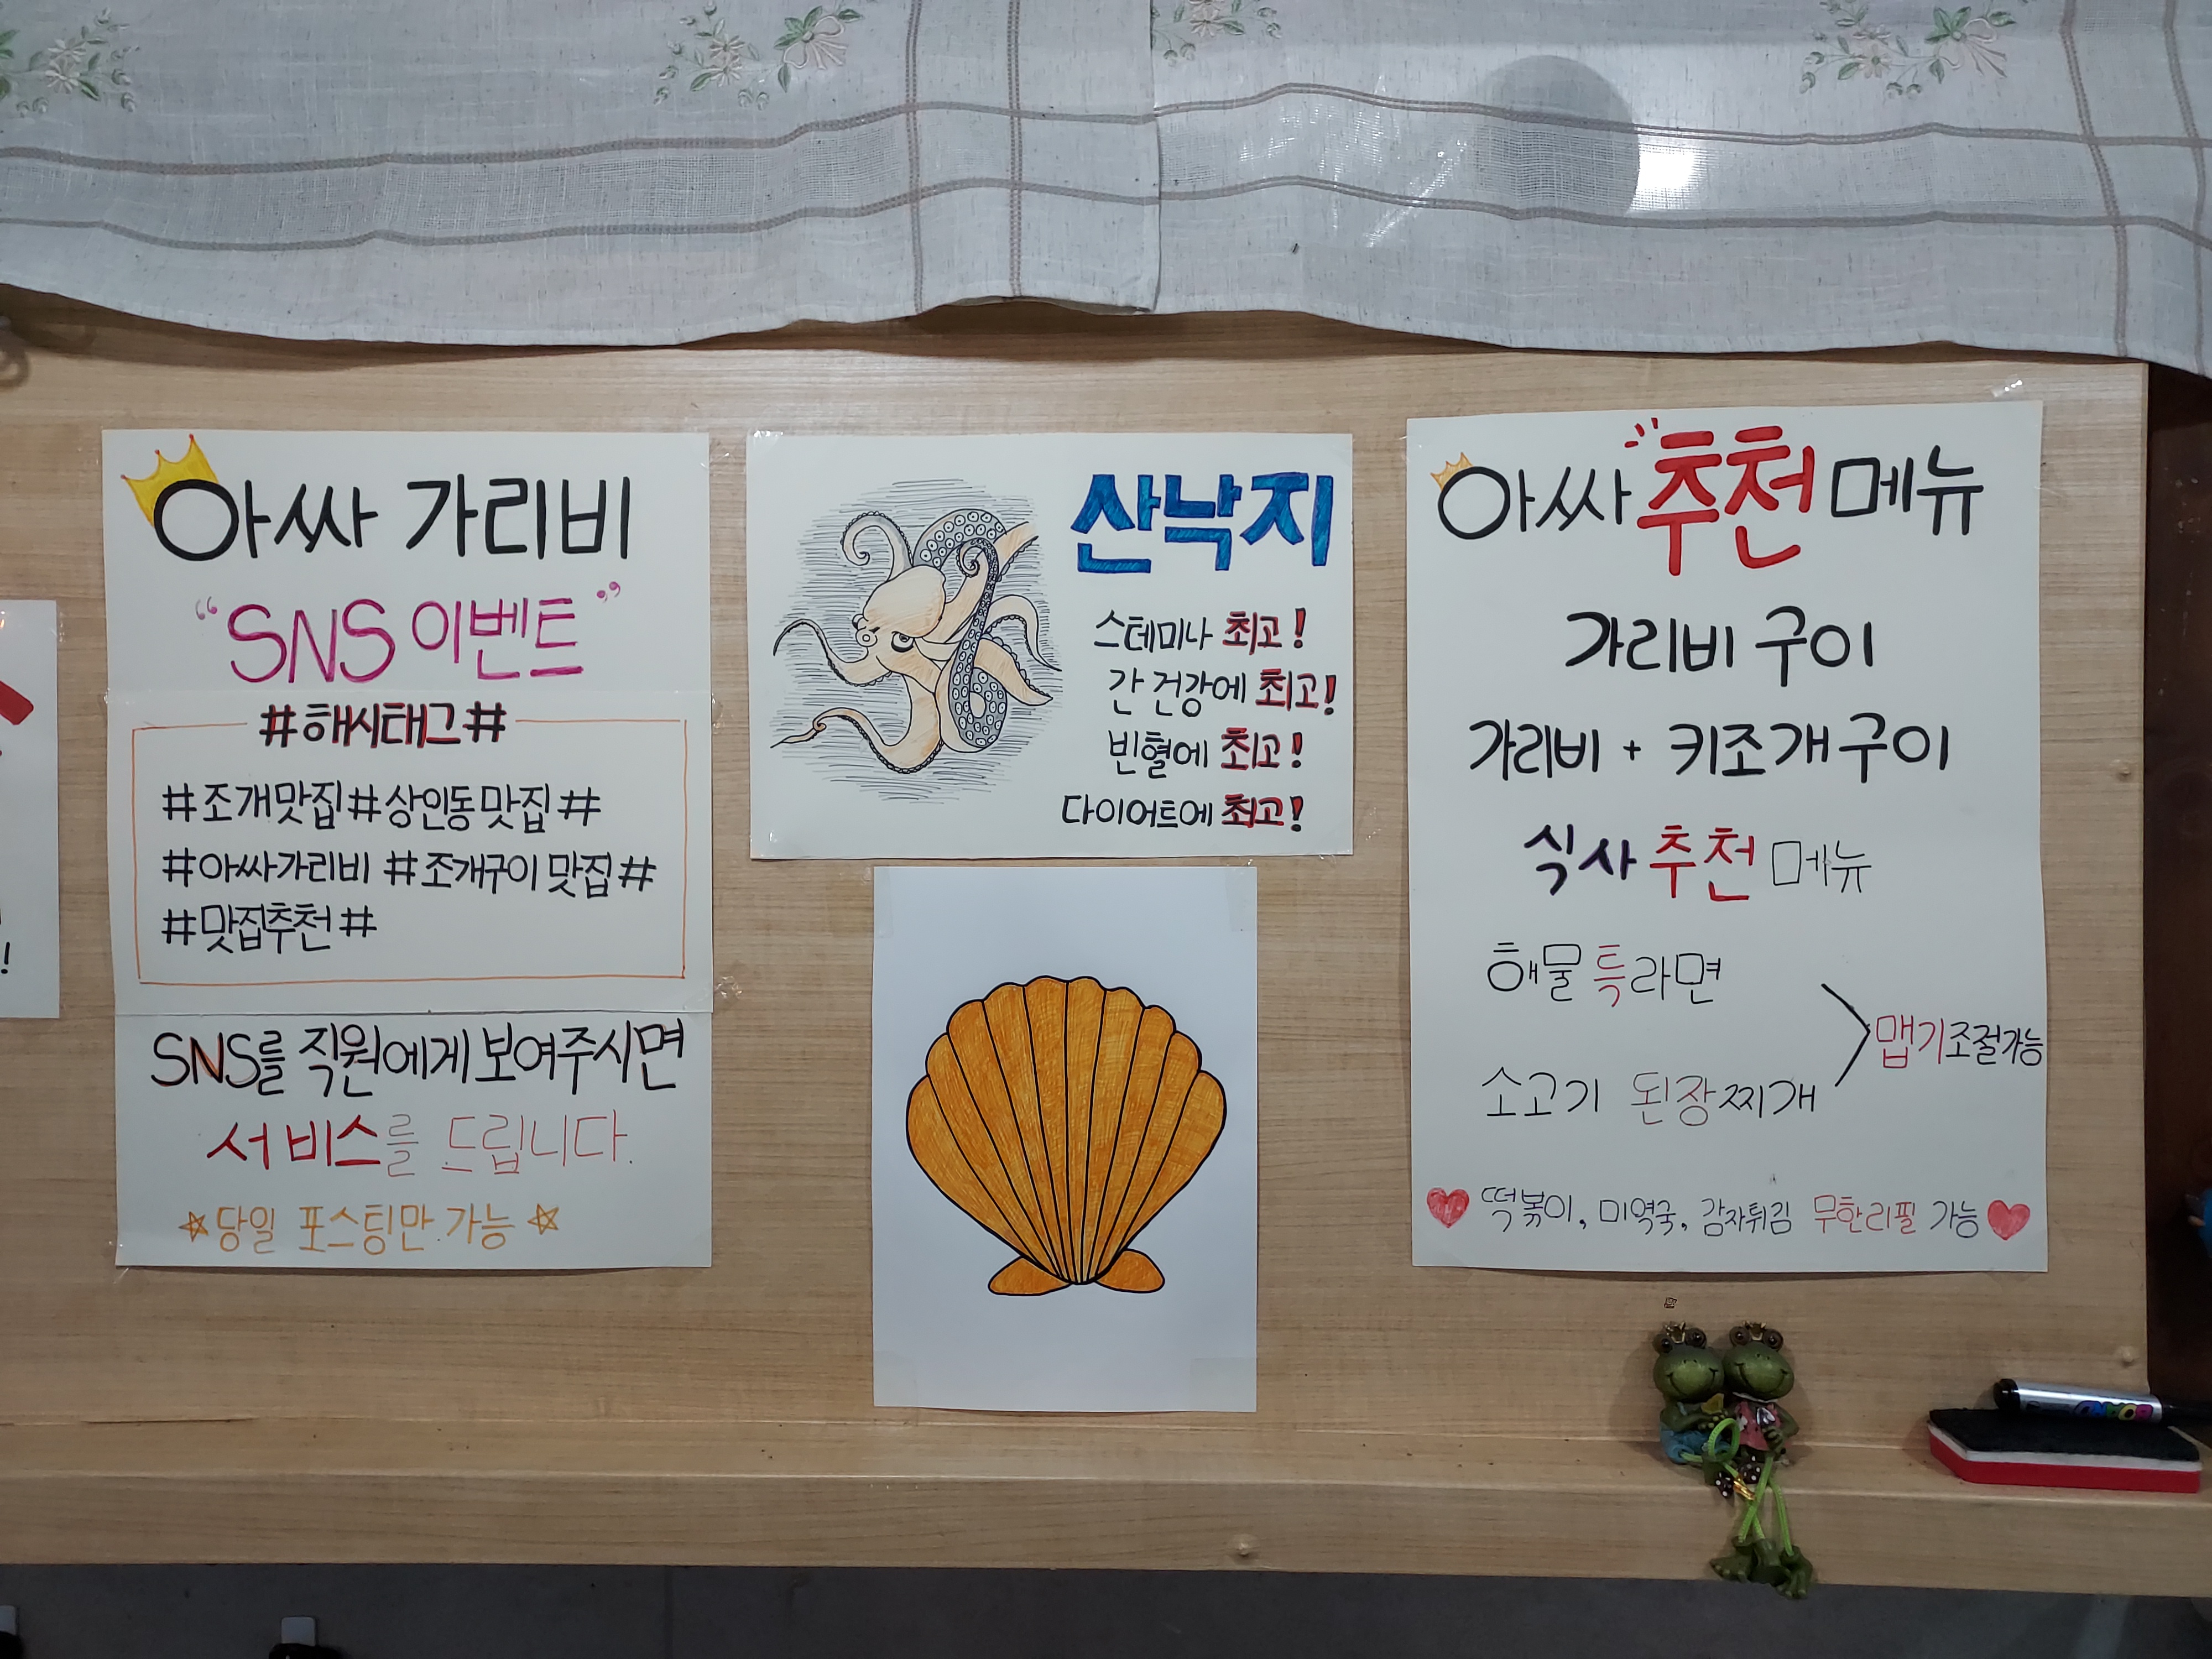 아싸 가리비
"SNS 이벤트"
#해시태그#
#조개맛집#상인동맛집#
#아싸가리비 #조개구이 맛집#
#맛집추천#
SNS를 직원에게 보여주시면
서비스를 드립니다.
☆당일 포스팅만 가능☆
산낙지
스테미나 최고!
간 건강에 최고!
빈혈에 최고!
다이어트에 최고!
아싸 추천 메뉴
가리비 구이
가리비 + 키조개구이
식사 추천 메뉴
해물 특라면
소고기 된장찌개
맵기조절가능
떡볶이, 미역국, 감자튀김 무한리필 가능